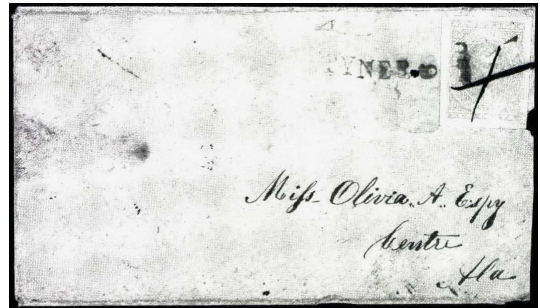 Miss Olivia. A. Espy
Centre
Ala